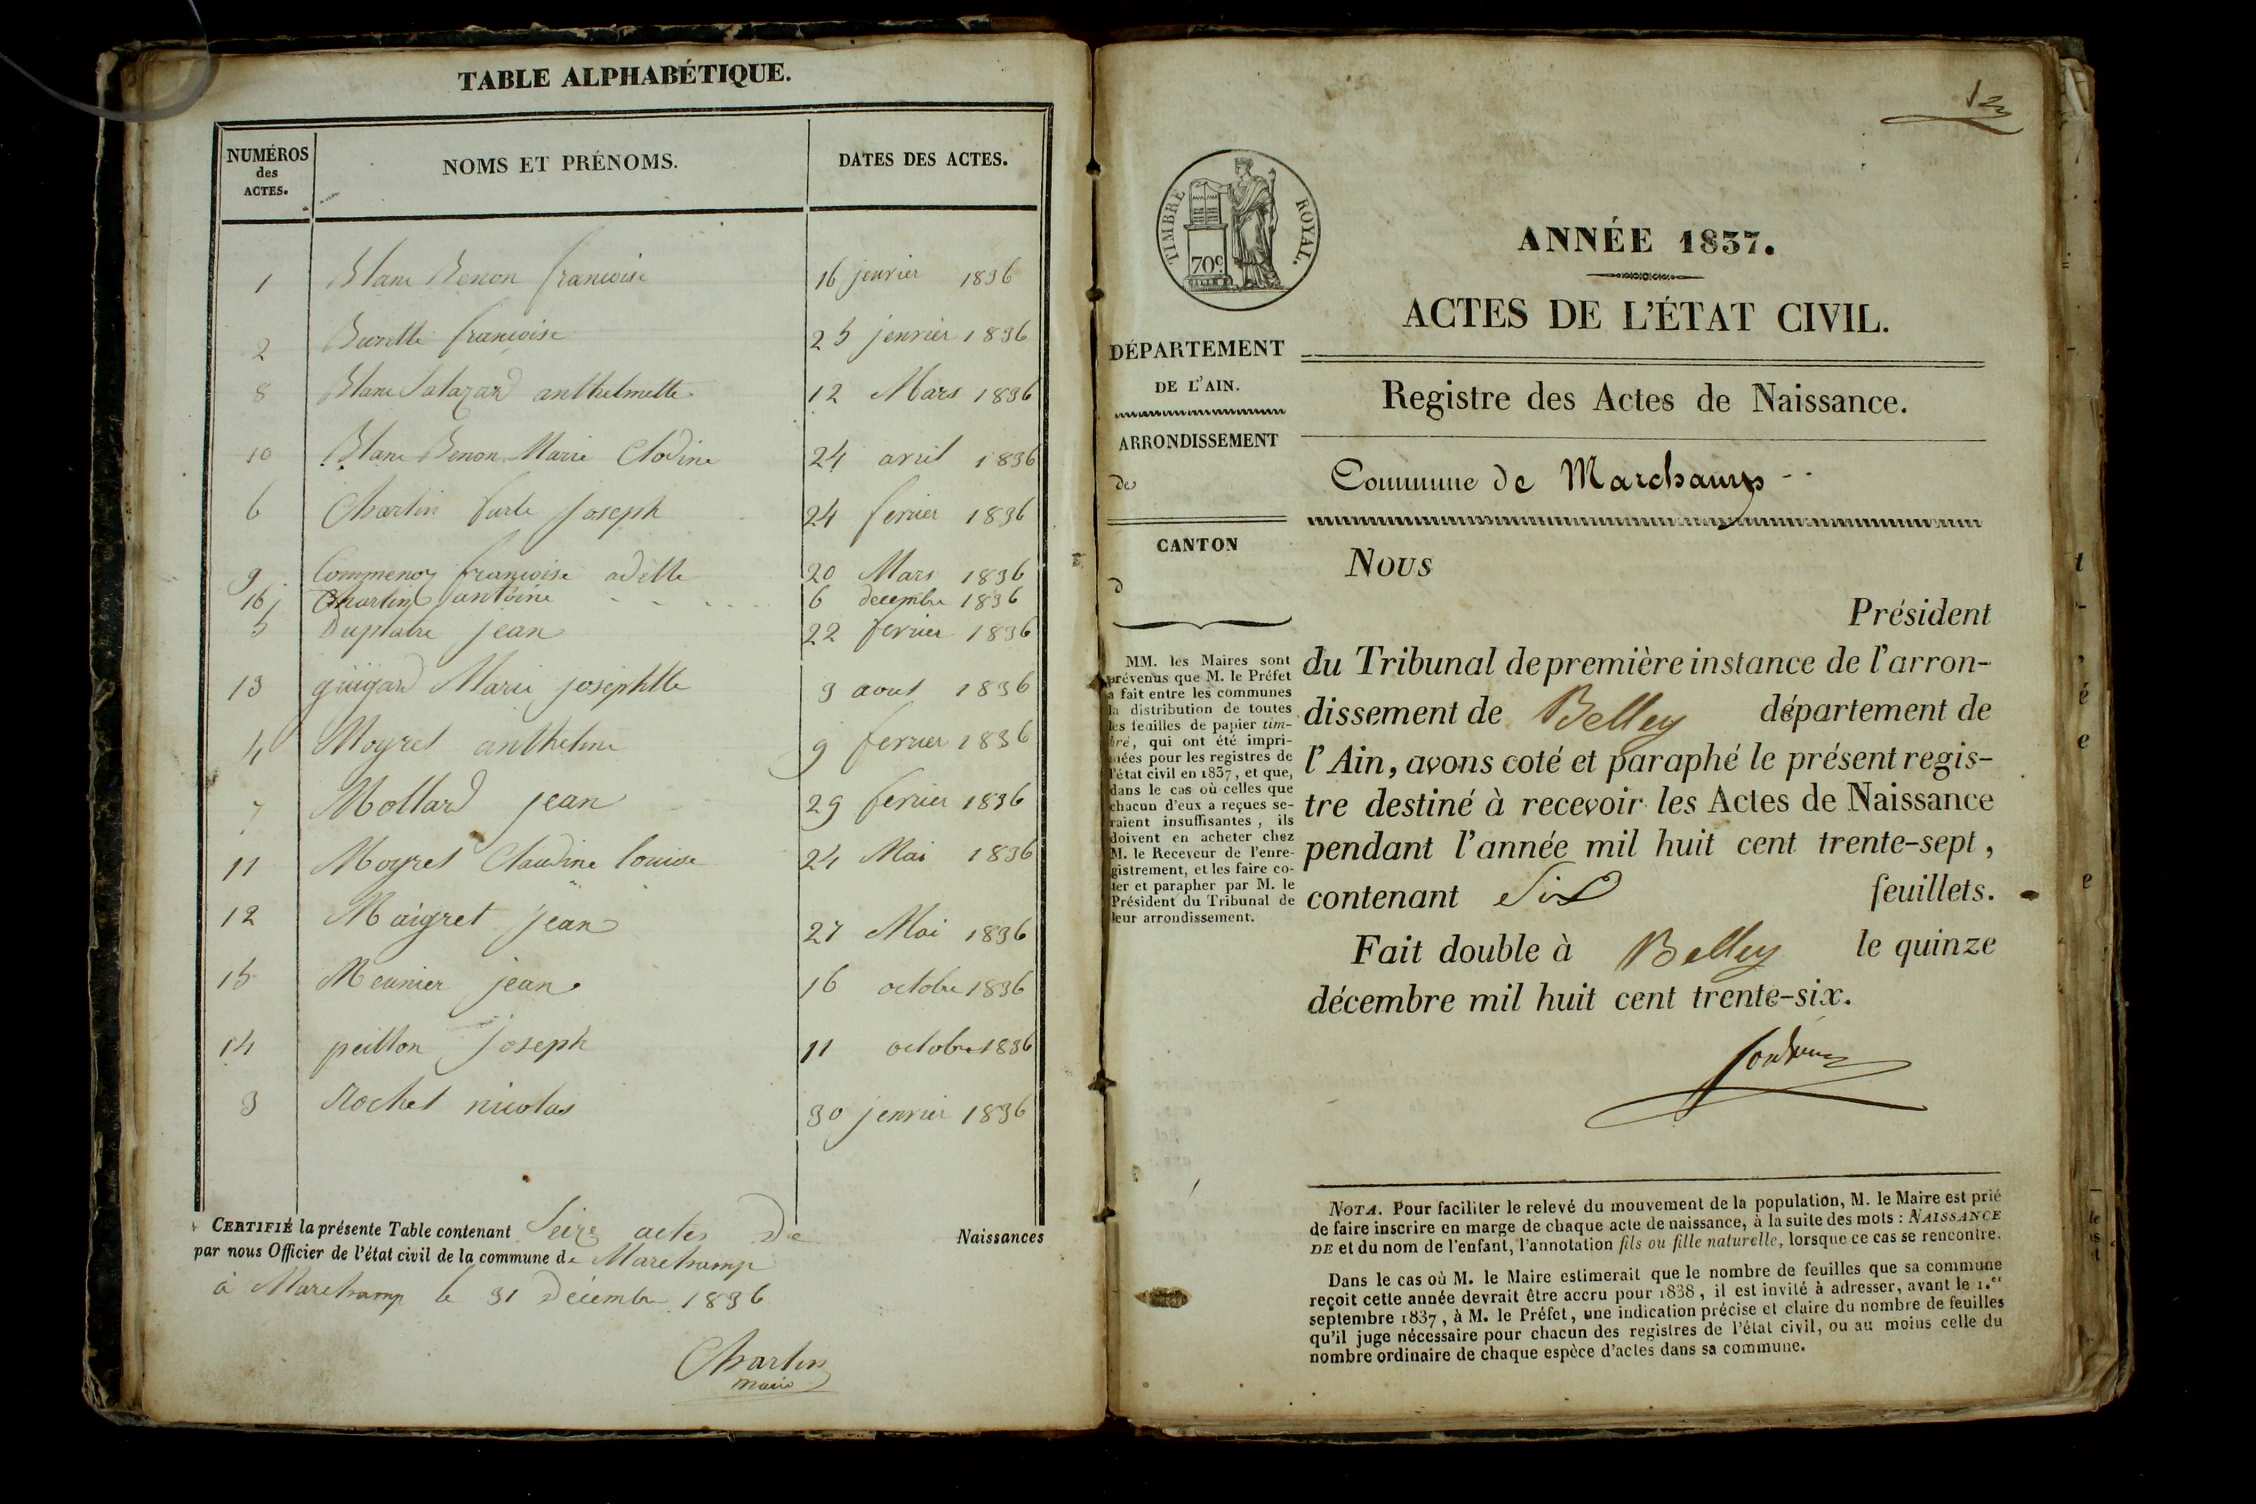 TABLE ALPHABÉTIQUE.
NUMÉROS des ACTES. NOMS ET PRÉNOMS. DATES DES ACTES.
1 Blanc Benon francoise 16 jenvier 1836
2 francoise 25 jenvier 1836
8 Blanc Salazard anthelmette 12 Mars 1836
10 Blanc Benon Marie Clodine 24 avril 1836
6 Chartin joseph 24 fevrier 1836
9 francoise adelle 20 Mars 1836
16 Chartin antoine 6 decembre 1836
5 jean 22 fevrier 1836
13 guigard Marie josephtte 3 aout 1836
4 Moyret anthelme 9 fevrier 1836
7 Mollard jean 29 fevrier 1836
11 Moyret Claudine louise 24 Mai 1836
12 Maigret jean 27 Mai 1836
15 Meunier jean 16 octobre 1836
14 peillon joseph 11 octobre 1836
3 Rochet nicolas 30 jenvier 1836
CERTIFIÉ la présente Table contenant Seize actes De Naissances
par nous Officier de l'état civil de la commune de Marchamp
à Marchamp le 31 Décembre 1836
Chartin
maire
TIMBRE ROYAL.
70c
ANNÉE 1837.
ACTES DE L'ÉTAT CIVIL.
DÉPARTEMENT
DE L'AIN.
Registre des Actes de Naissance.
ARRONDISSEMENT
de
Commune de Marchamp
CANTON
d
MM. les Maires sont
prévenus que M. le Préfet
a fait entre les communes
la distribution de toutes
les feuilles de papier tim-
bré, qui ont été impri-
mées pour les registres de
l'état civil en 1837, et que,
dans le cas où celles que
chacun d'eux a reçues se-
raient insuffisantes, ils
doivent en acheter chez
M. le Receveur de l'enre-
gistrement, et les faire co-
ter et parapher par M. le
Président du Tribunal de
leur arrondissement.
Nous
Président
du Tribunal de première instance de l'arron-
dissement de Belley département de
l'Ain, avons coté et paraphé le présent regis-
tre destiné à recevoir les Actes de Naissance
pendant l'année mil huit cent trente-sept,
contenant Six feuillets.
Fait double à Belley le quinze
décembre mil huit cent trente-six.
NOTA. Pour faciliter le relevé du mouvement de la population, M. le Maire est prié
de faire inscrire en marge de chaque acte de naissance, à la suite des mots : NAISSANCE
DE et du nom de l'enfant, l'annotation fils ou fille naturelle, lorsque ce cas se rencontre.
Dans le cas où M. le Maire estimerait que le nombre de feuilles que sa commune
reçoit cette année devrait être accru pour 1838, il est invité à adresser, avant le 1.er
septembre 1837, à M. le Préfet, une indication précise et claire du nombre de feuilles
qu'il juge nécessaire pour chacun des registres de l'état civil, ou au moins celle du
nombre ordinaire de chaque espèce d'actes dans sa commune.